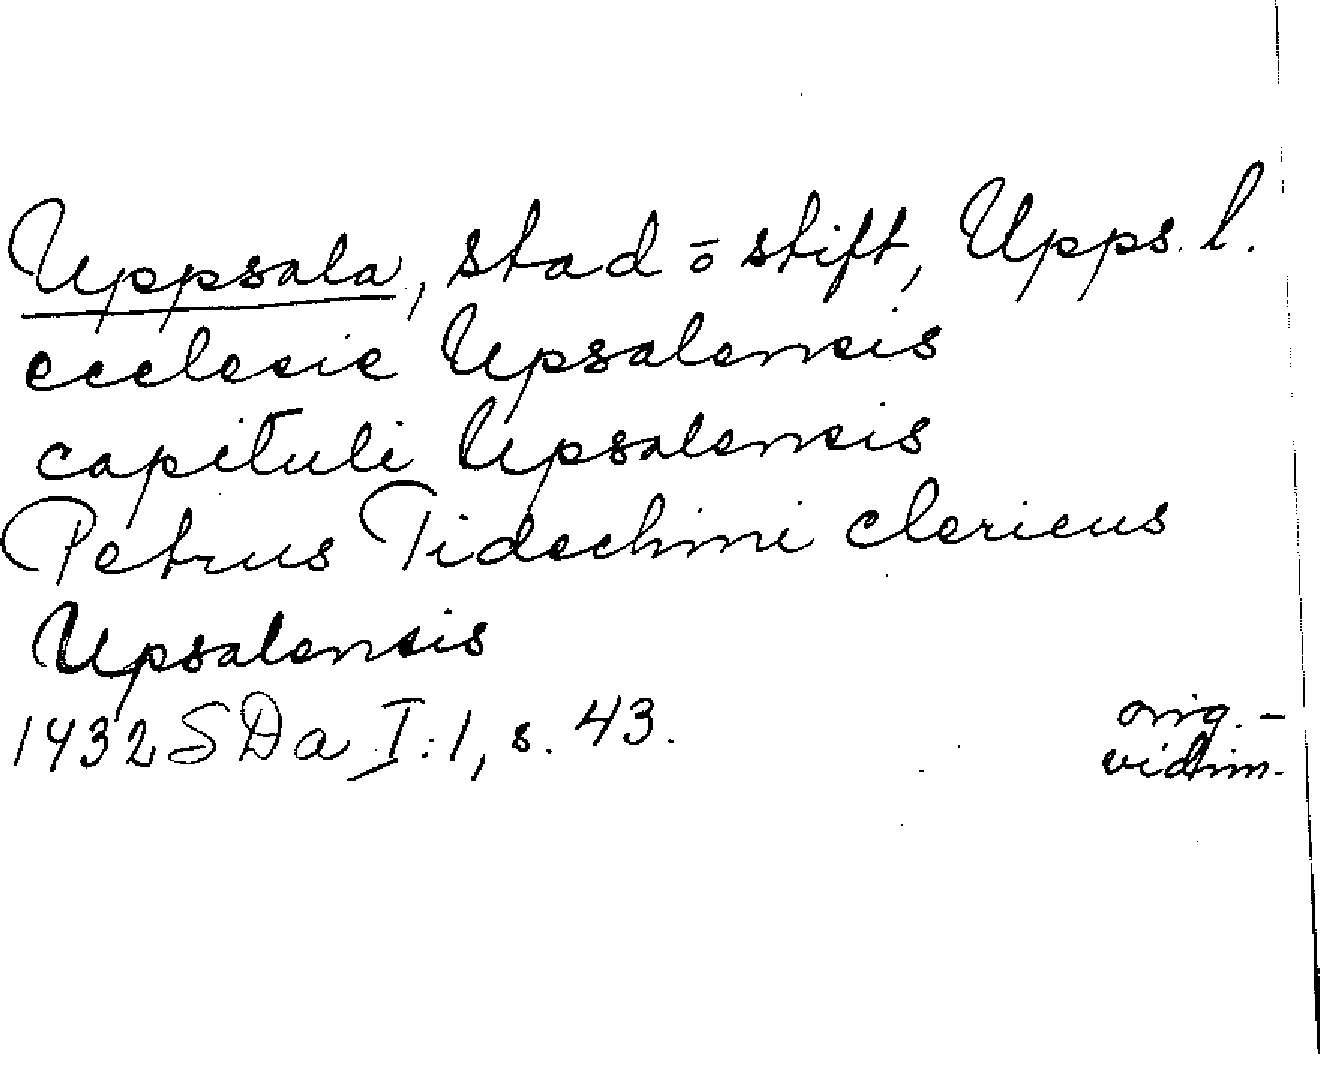 Uppsala, stad o stift, Upps. l.
ecclesie Upsalensis
capituli Upsalensis
Petrus Tidechini clericus
Upsalensis
1432 SDa I:1, s. 43.
orig.-
vidim.